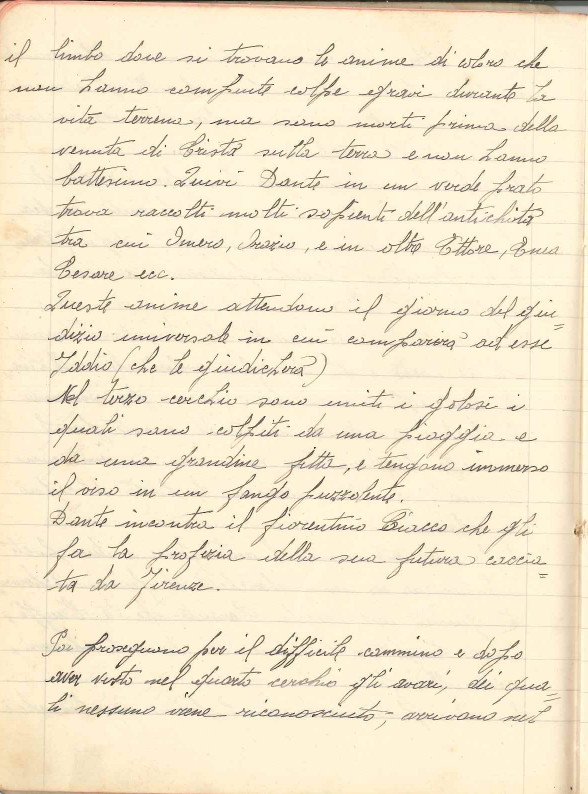 il limbo dove si trovano le anime di coloro che
non hanno compiute colpe gravi durante la
vita terrena, ma sono morti prima della
venuta di Cristo sulla terra e non hanno
battesimo. Quivi Dante in un verde prato
trova raccolti molti sapienti dell'antichità
tra cui Omero, Orazio, e in oltre Ettore, Enea
Cesare ecc.
Queste anime attendono il giorno del giu=
dizio universale in cui comparirà ad esse
Iddio (che le giudicherà)
Nel terzo cerchio sono uniti i golosi i
quali sono colpiti da una pioggia e
da una grandine fitta, e tengono immerso
il viso in un fango puzzolente.
Dante incontra il fiorentino Ciacco che gli
fa la profezia della sua futura caccia=
ta da Firenze.
Poi proseguono per il difficile cammino e dopo
aver visto nel quarto cerchio gli avari, dei qua=
li nessuno viene riconosciuto, arrivano nel